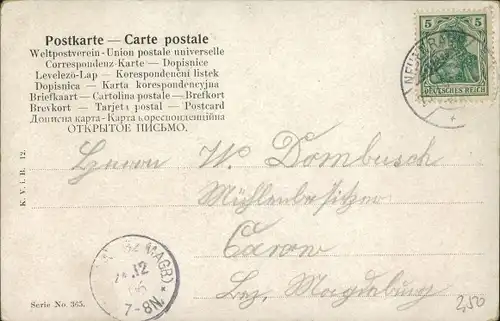 Postkarte — Carte postale
Weltpostverein - Union postale universelle
Correspondenz-Karte — Dopisnice
Levelező-Lap — Korespondenční listek
Dopisnica — Karta korespondencyjna
Briefkaart — Cartolina postale — Brefkort
Brevkort — Tarjeta postal — Postcard
Дописна карта - Карта кореспонденцiйна
ОТКРЫТОЕ ПИСЬМО.
5 5
DEUTSCHES REICH
Herrn W. Dombusch
Mühlenbesitzer
Bez. Magdeburg
2,50
K. V. i. B. 12.
MAGB.)
12
7-8N.
Serie No. 365.